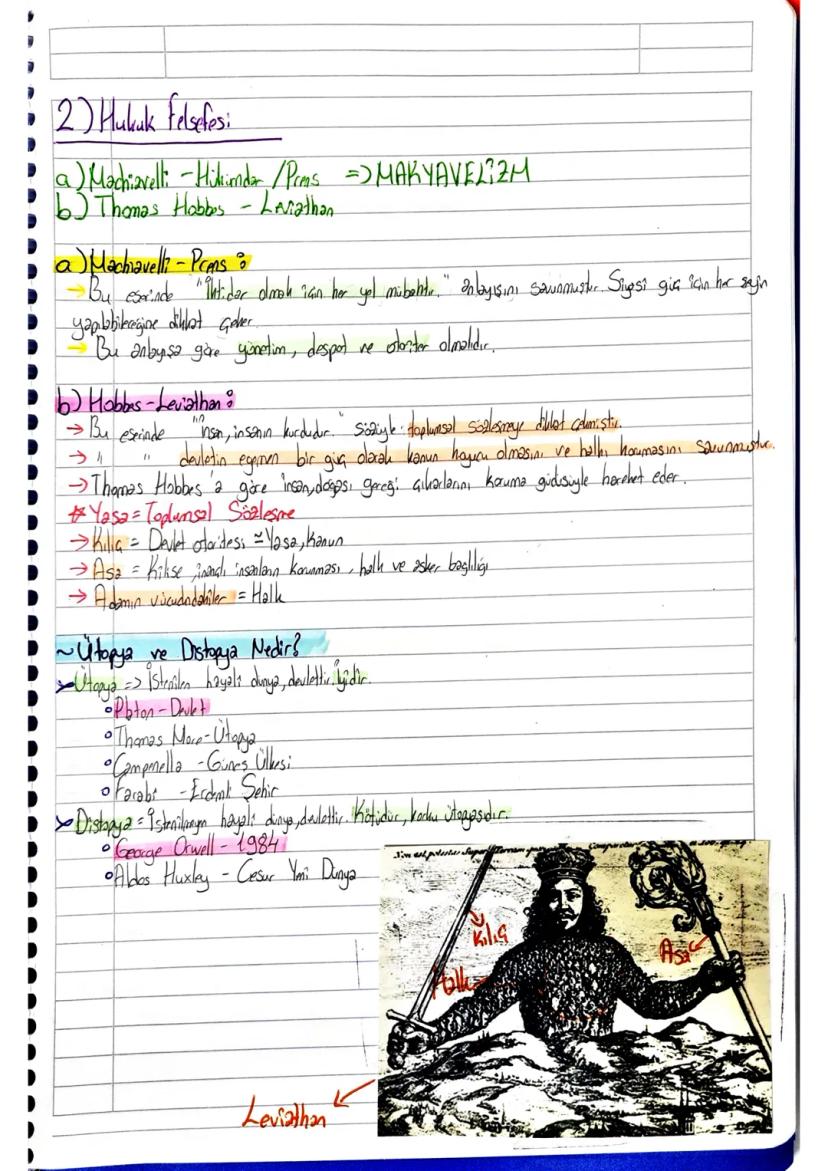 2) Hukuk Felsefesi
a) Machiavelli - Hükümdar / Prens => MAKYAVELİZM
b) Thomas Hobbes - Leviathan
a) Machiavelli - Prens :
→ Bu eserinde "İktidar olmak için her yol mübahtır." anlayışını savunmuştur. Siyasi güç için her şeyin
yapılabileceğine dikkat çeker.
→ Bu anlayışa göre yönetim, despot ve otoriter olmalıdır.
b) Hobbes - Leviathan :
→ Bu eserinde "İnsan, insanın kurdudur." sözüyle toplumsal sözleşmeye dikkat çekmiştir.
→ " " devletin egemen bir güç olarak kanun koyucu olmasını ve halkı korumasını savunmuştur.
→ Thomas Hobbes'a göre insan, doğası gereği çıkarlarını koruma güdüsüyle hareket eder.
* Yasa = Toplumsal Sözleşme
→ Kılıç = Devlet otoritesi ≅ Yasa, kanun
→ Asa = Kilise, inançlı insanların korunması, halk ve asker bağlılığı
→ Adamın vücudundakiler = Halk
~ Ütopya ve Distopya Nedir?
➤ Ütopya => İstenilen hayali dünya, devlettir. "İyi"dir.
∘ Platon - Devlet
∘ Thomas More - Ütopya
∘ Campenella - Güneş Ülkesi
∘ Farabi - Erdemli Şehir
➤ Distopya = İstenilmeyen hayali dünya, devlettir. Kötüdür, korku ütopyasıdır.
∘ George Orwell - 1984
∘ Aldos Huxley - Cesur Yeni Dünya
Non est potestas Super Terram
Kılıç
Asa
Halk
Leviathan